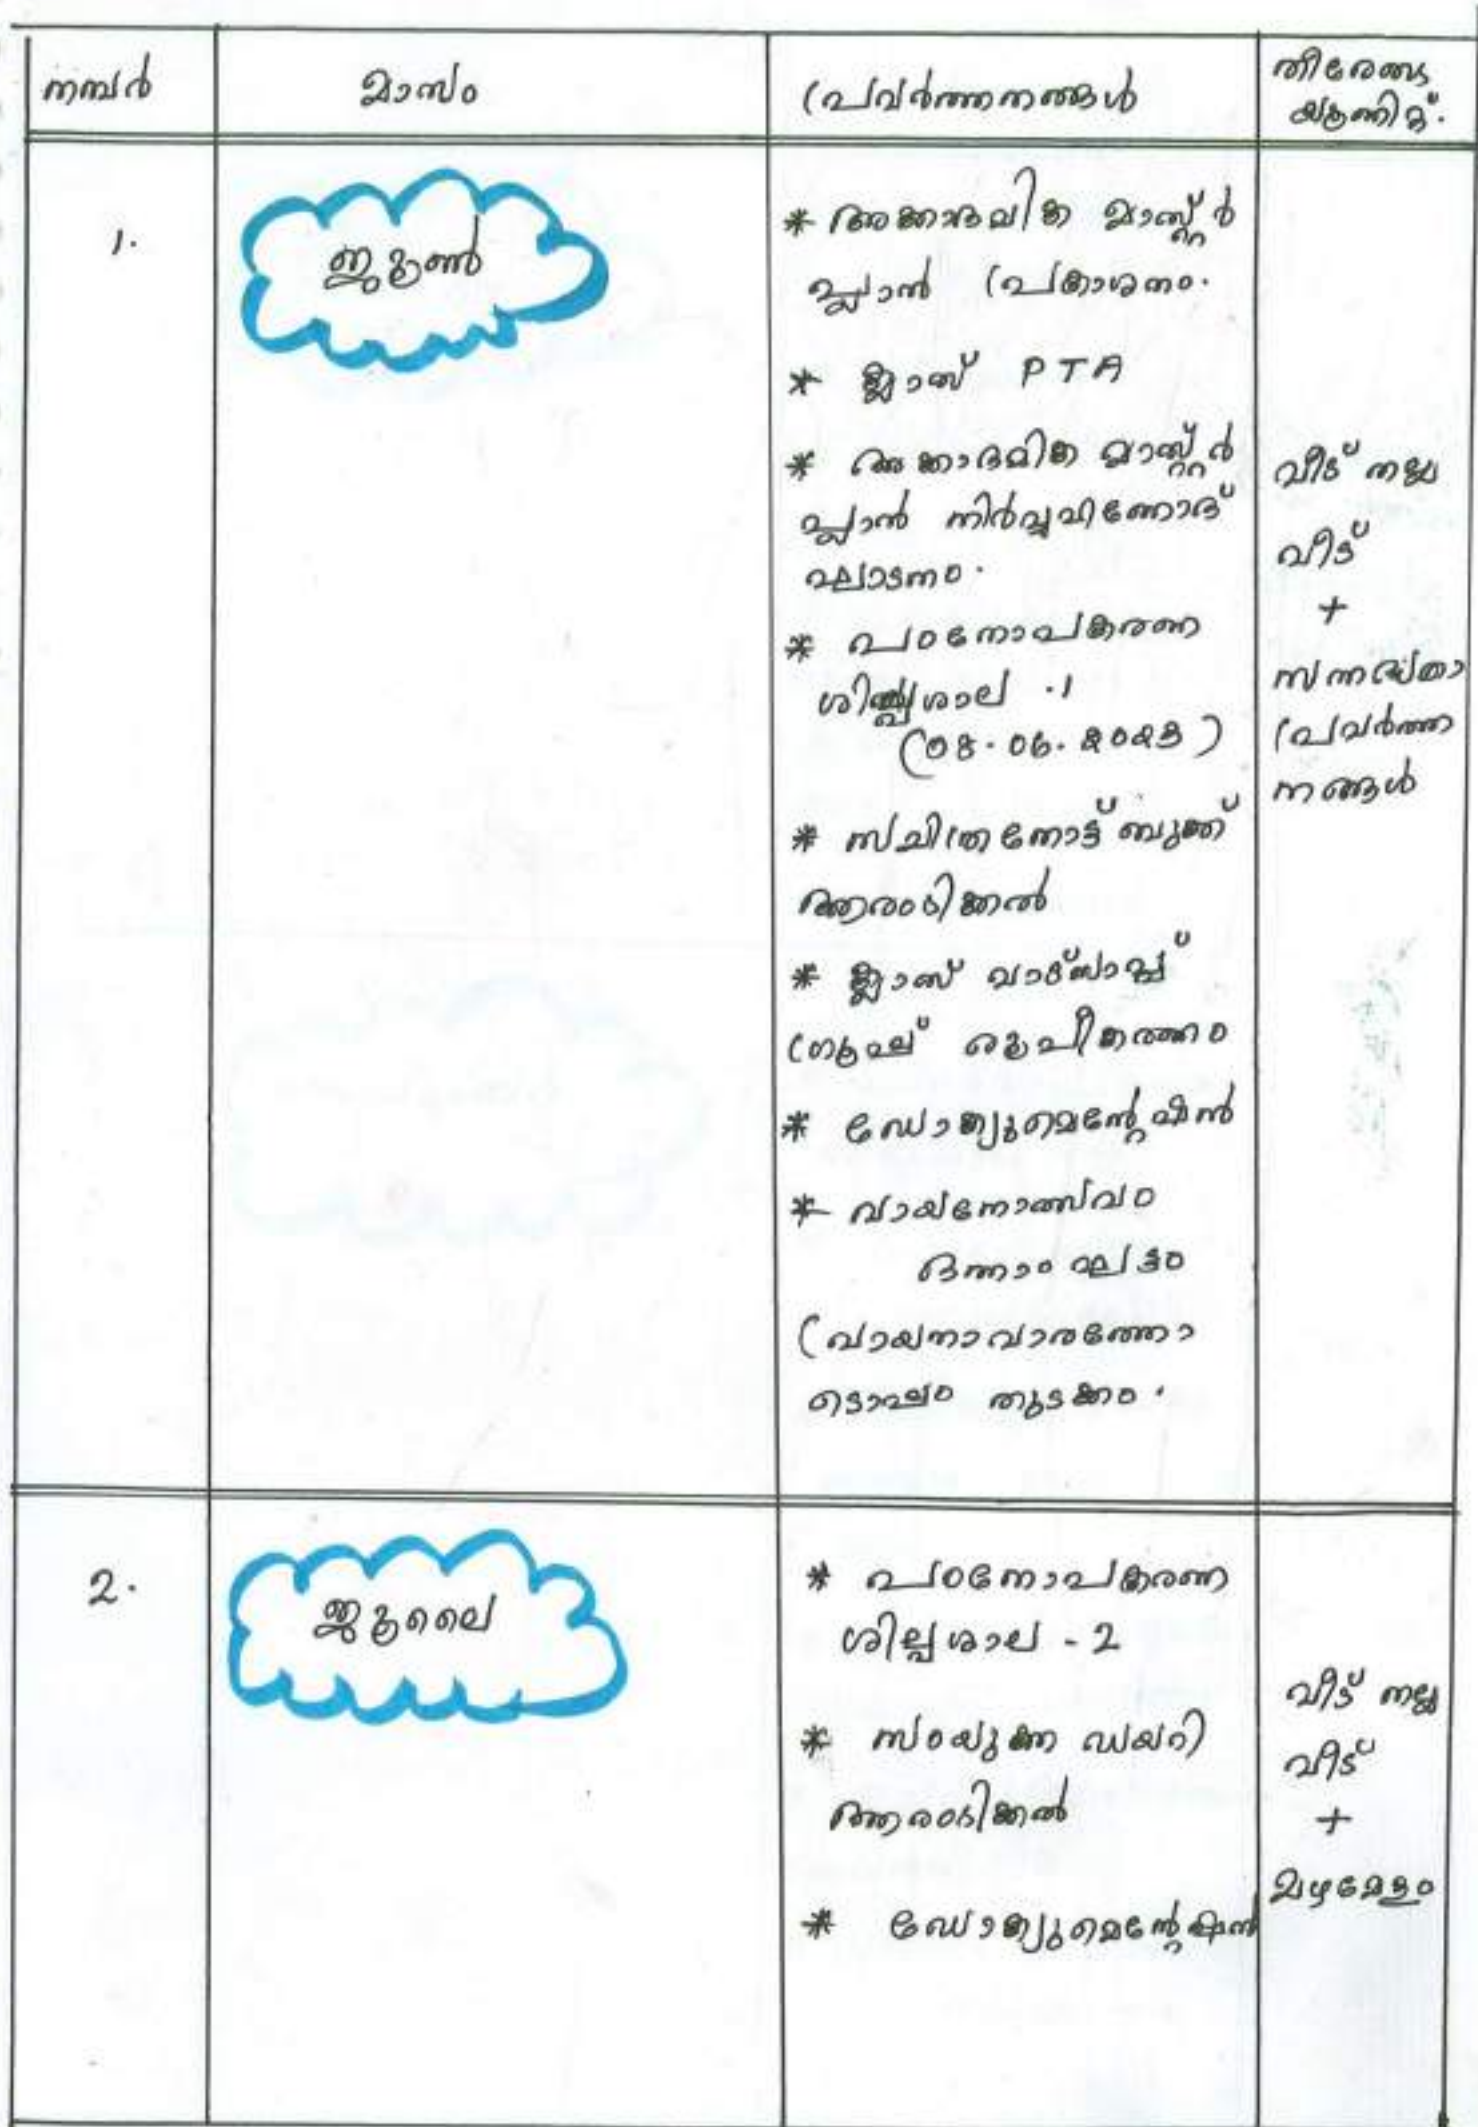 നമ്പർ
മാസം
പ്രവർത്തനങ്ങൾ
തീരേണ്ട
യൂണിറ്റ്.
1.
ജൂൺ
* അക്കാദമിക മാസ്റ്റർ
പ്ലാൻ പ്രകാശനം.
* ക്ലാസ് PTA
* അക്കാദമിക മാസ്റ്റർ
പ്ലാൻ നിർവ്വഹണോദ്
ഘാടനം.
* പഠനോപകരണ
ശില്പശാല .1
(08.06.2023)
* സചിത്രനോട്ട്ബുക്ക്
ആരംഭിക്കൽ
* ക്ലാസ് വാട്സാപ്പ്
ഗ്രൂപ്പ് രൂപീകരണം
* ഡോക്യുമെന്റേഷൻ
* വായനോത്സവം
ഒന്നാം ഘട്ടം
(വായനാവാരത്തോ
ടൊപ്പം തുടക്കം.
വീട് നല്ല
വീട്
+
സന്നദ്ധതാ
പ്രവർത്ത
നങ്ങൾ
2.
ജൂലൈ
* പഠനോപകരണ
ശില്പശാല - 2
* സംയുക്ത ഡയറി
ആരംഭിക്കൽ
* ഡോക്യുമെന്റേഷൻ
വീട് നല്ല
വീട്
+
മഴമേളം